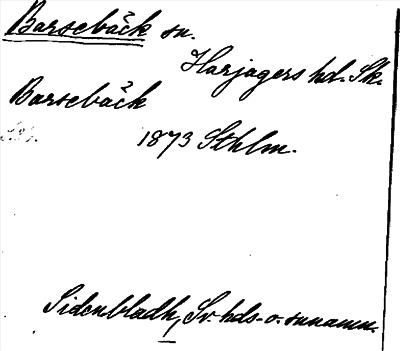 Barsebäck sn.
Harjagers hd. Sk.
Barsebäck
1873 Sthlm.
Sidenbladh, Sv. hds- o. snnamn.